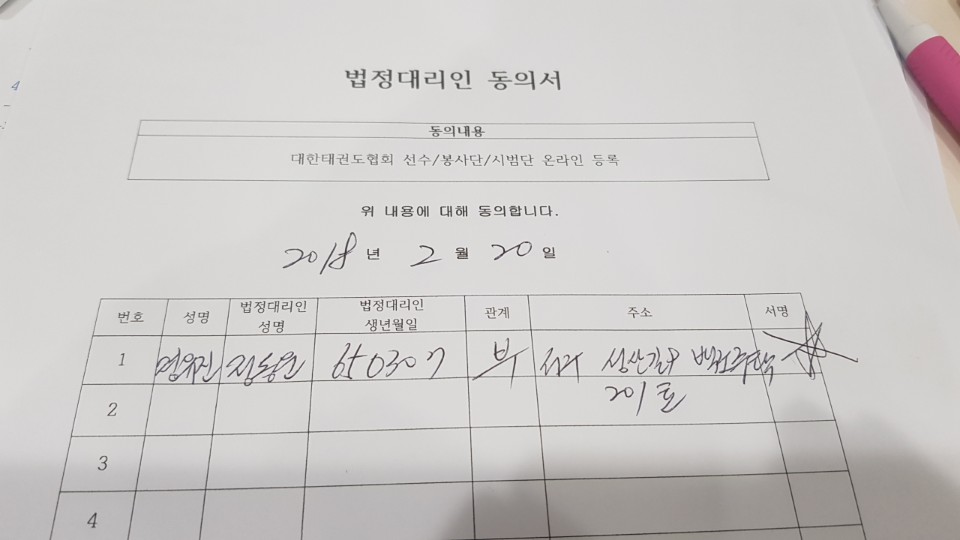 법정대리인 동의서
동의내용
대한태권도협회 선수/봉사단/시범단 온라인 등록
위 내용에 대해 동의합니다.
2018 년 2 월 20 일
번호 성명 법정대리인 성명 법정대리인 생년월일 관계 주소 서명
1 650307 부
201호
2
3
4